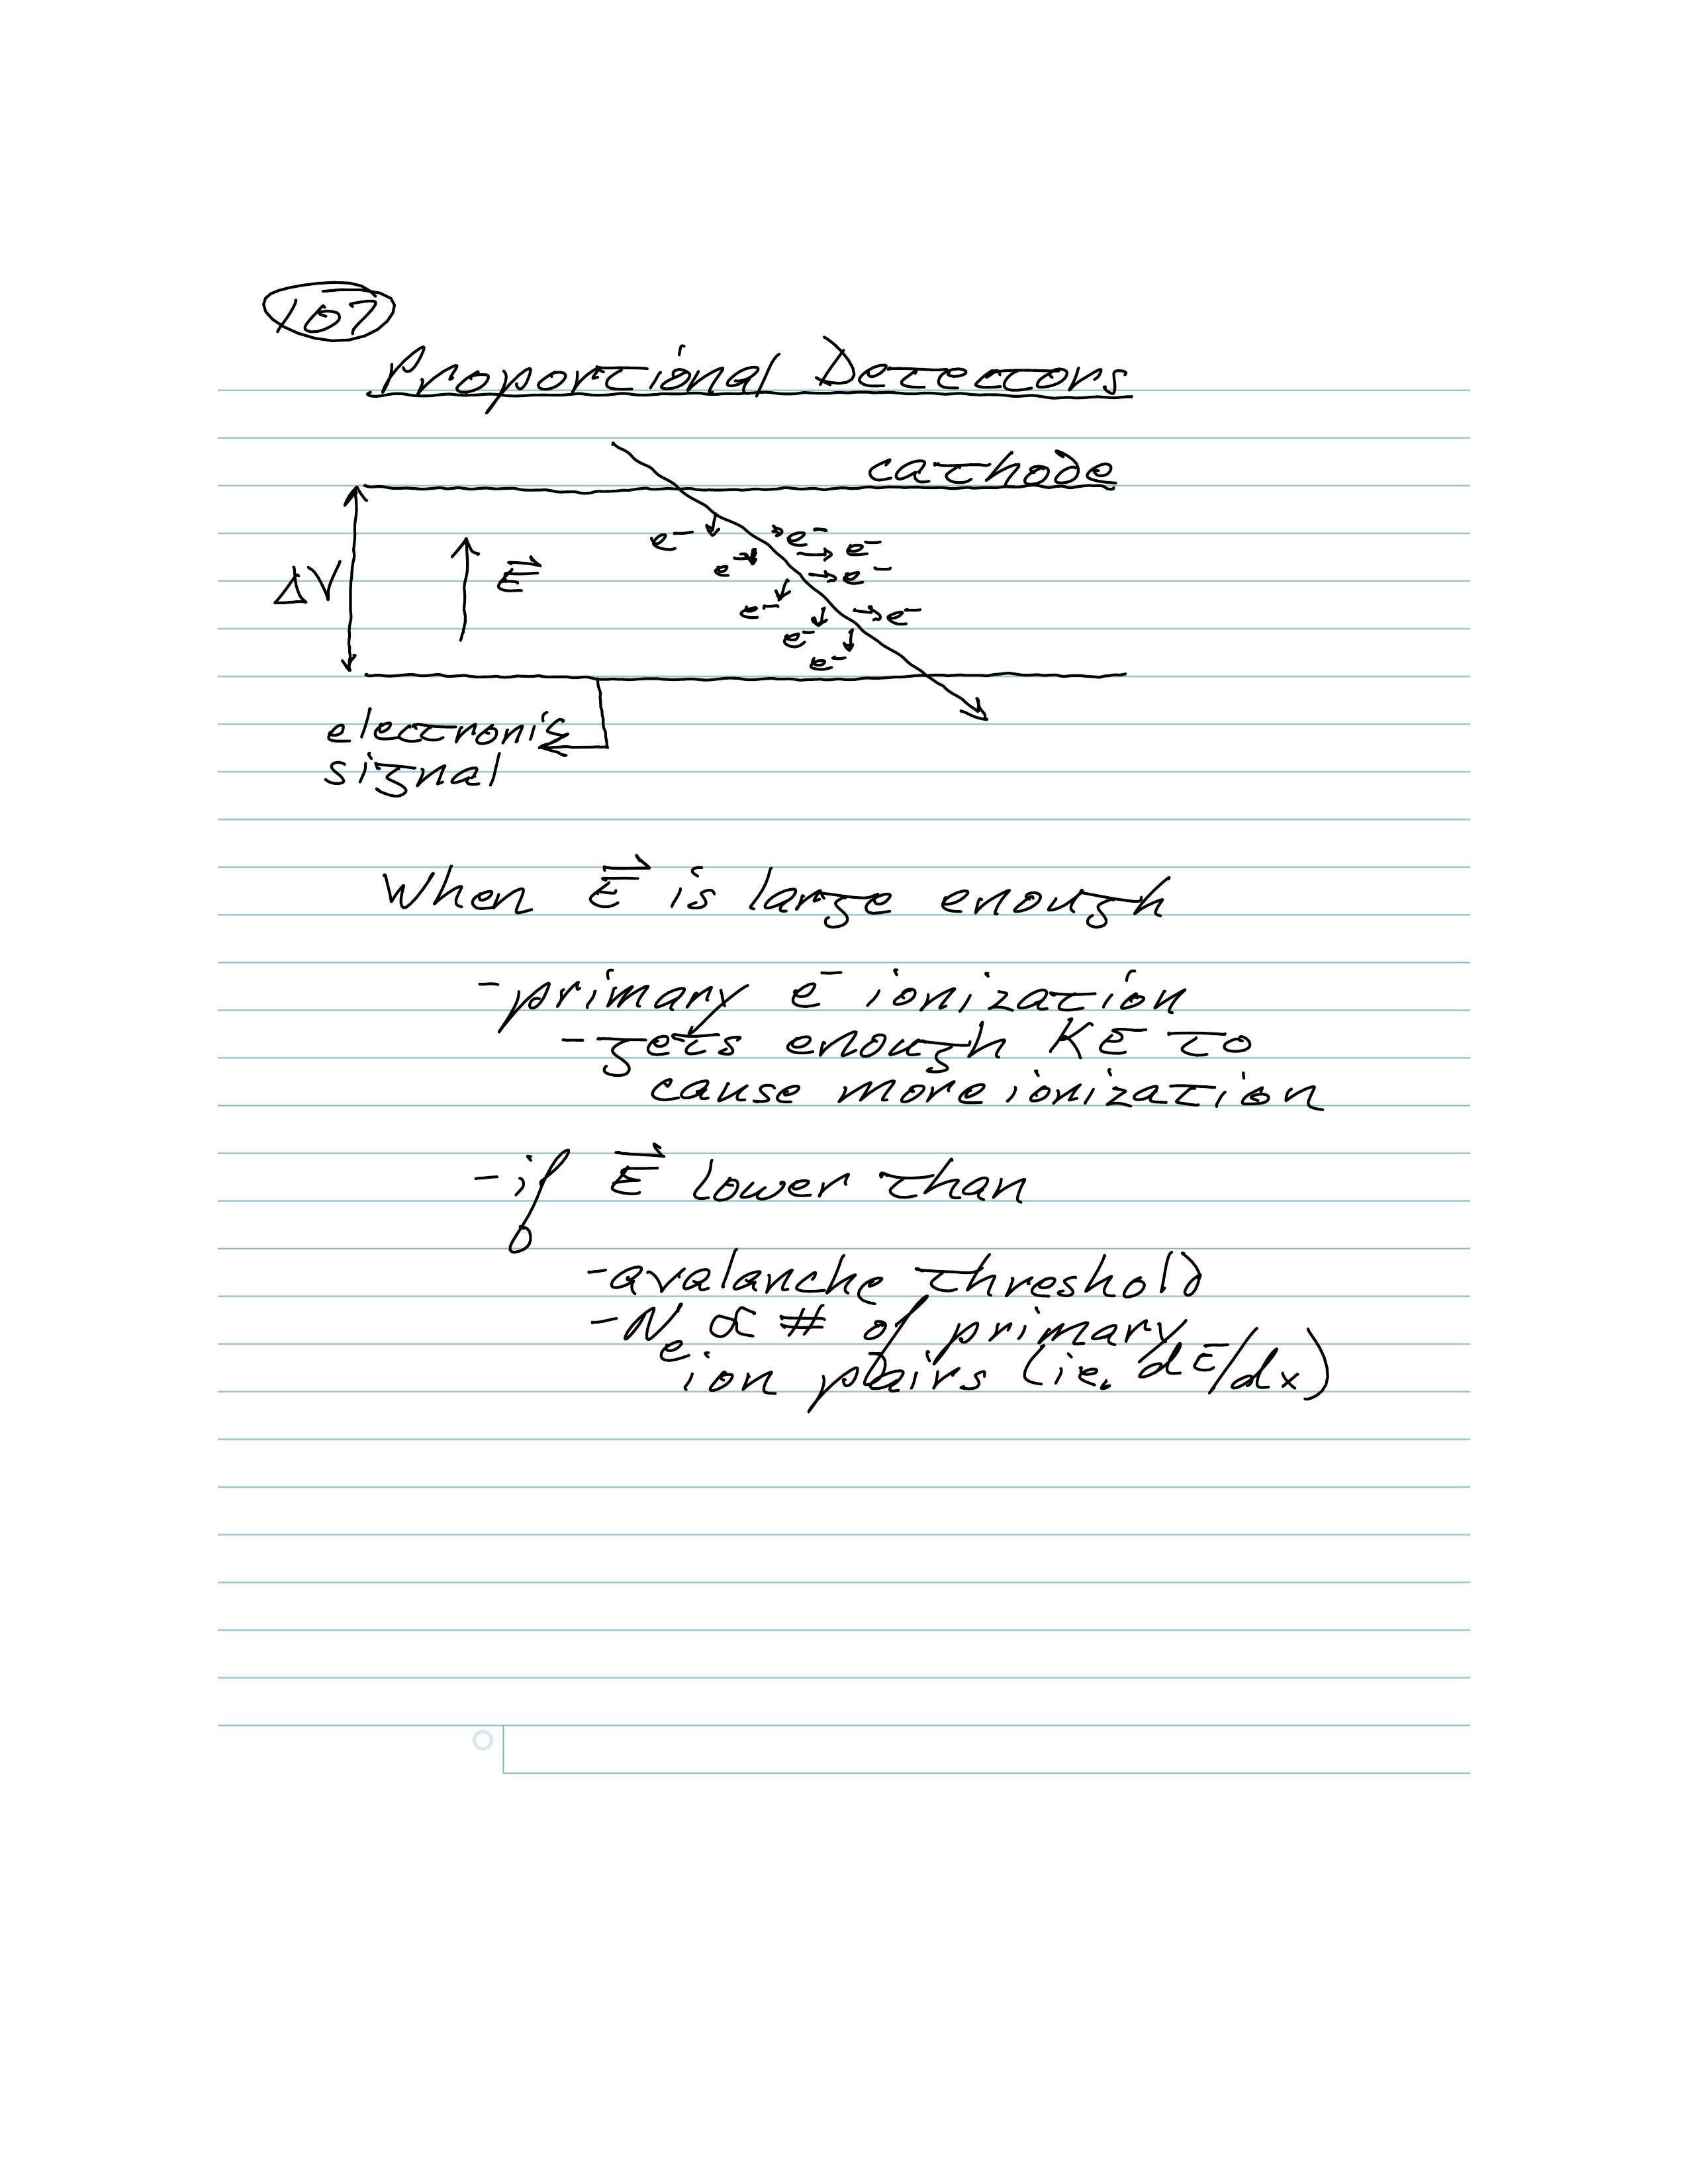 107
Proportional Detectors
cathode
e⁻ e⁻ e⁻
e⁻ e⁻
ΔV E⃗
e⁻ e⁻
e⁻
e⁻
electronic
signal
When E⃗ is large enough
- primary e⁻ ionization
- gets enough KE to
cause more ionization
- if E⃗ lower than
- avalanche threshold
- Nₑ ∝ # of primary
ion pairs (ie. dE/dx)